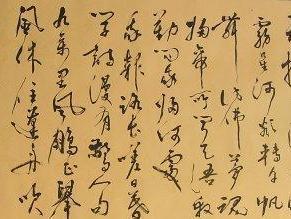 霧星河欲轉千帆
舞彷彿夢魂
歸帝所聞天語殷
勤問我歸何處
我報路長嗟日暮
學詩漫有驚人句
九萬里風鵬正舉
風休住蓬舟吹